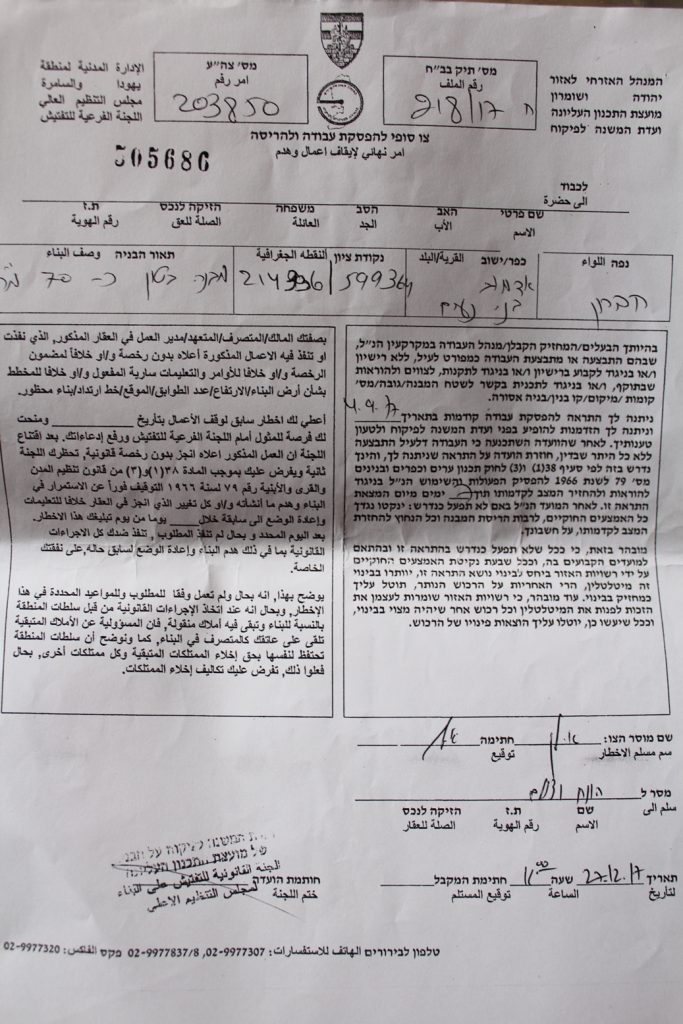 המנהל האזרחי לאזור
יהודה ושומרון
מועצת התכנון העליונה
ועדת המשנה לפיקוח
מס' תיק בב"ח
رقم الملف
ח 218/17
מס' צה"ע
امر رقم
203850
الإدارة المدنية لمنطقة
يهودا والسامرة
مجلس التنظيم العالي
اللجنة الفرعية للتفتيش
צו סופי להפסקת עבודה ולהריסה
امر نهائي لإيقاف اعمال وهدم
505686
לכבוד
الى حضرة
שם פרטי האב הסב משפחה הזיקה לנכס ת.ז
الاسم الأب الجد العائلة الصلة للعق رقم الهوية
נפה اللواء
חברון
כפר/ישוב القرية/البلد
בני נעים
נקודת ציון النقطه الجغرافية
214936 / 599364
תאור הבניה وصف البناء
מבנה בטון כ- 70 מ"ר
בהיותך הבעלים/המחזיק הקבלן/מנהל העבודה במקרקעין הנ"ל,
שבהם התבצעה או מתבצעת העבודה כמפורט לעיל, ללא רישיון
ו/או בניגוד לקבוע ברישיון ו/או בניגוד לתקנות, לצווים ולהוראות
שבתוקף, ו/או בניגוד לתכנית בקשר לשטח המבנה/גובה/מס'
קומות /מיקום/קו בנין/בניה אסורה.
ניתנה לך התראה להפסקת עבודה קודמות בתאריך 4.9.17
וניתנה לך הזדמנות להופיע בפני ועדת המשנה לפיקוח ולטעון
טענותיך. לאחר שהוועדה השתכנעה כי העבודה דלעיל התבצעה
ללא כל היתר שבדין, חוזרת הועדה על התראה שניתנה לך, והינך
נדרש בזה לפי סעיף 38(1) ו(3) לחוק תכנון ערים וכפרים ובנינים
מס' 79 לשנת 1966 להפסיק הפעולות והשימוש הנ"ל בניגוד
להוראות ולהחזיר המצב לקדמותו תוך ימים מיום המצאת
התראה זו. לאחר המועד הנ"ל באם לא תפעל כנדרש: ינקטו נגדך
כל האמצעים החוקיים, לרבות הריסת המבנה וכל הנחוץ להחזרת
המצב לקדמותו, על חשבונך.
מובהר בזאת, כי ככל שלא תפעל כנדרש בהתראה זו ובהתאם
למועדים הקבועים בה, וככל שבעת נקיטת האמצעים החוקיים
על ידי רשויות האזור ביחס לבינוי נושא התראה זו, יוותרו בבינוי
זה מיטלטלין, הרי האחריות על הרכוש הנותר, תוטל עליך
כמחזיק בבינוי. עוד מובהר, כי רשויות האזור שומרות לעצמן את
הזכות לפנות את המיטלטלין וכל רכוש אחר שיהיה מצוי בבינוי,
וככל שיעשו כן, יוטלו עליך הוצאות פינויו של הרכוש.
بصفتك المالك/المتصرف/المتعهد/مدير العمل في العقار المذكور, الذي نفذت
او تنفذ فيه الاعمال المذكورة أعلاه بدون رخصة و/او خلافاً لمضمون
الرخصة و/او خلافا للأوامر والتعليمات سارية المفعول و/او خلافا للمخطط
بشأن أرض البناء/الارتفاع/عدد الطوابق/الموقع/خط ارتداد/بناء محظور.
أعطي لك اخطار سابق لوقف الأعمال بتاريخ ومنحت
لك فرصة للمثول أمام اللجنة الفرعية للتفتيش ورفع إدعاءاتك. بعد اقتناع
اللجنة ان العمل المذكور اعلاه انجز بدون رخصة قانونية, تحظرك اللجنة
ثانية ويفرض عليك بموجب المادة ٣٨(١)و(٣) من قانون تنظيم المدن
والقرى والأبنية رقم ٧٩ لسنة ١٩٦٦ التوقيف فوراً عن الاستمرار في
البناء وهدم ما أنشأته و/او كل تغيير الذي انجز في العقار خلافا للتعليمات
وإعادة الوضع الى سابقة خلال يوما من يوم تبليغك هذا الاخطار.
بعد اليوم المحدد و بحال لم تنفذ المطلوب , تنفذ ضدك كل الاجراءات
القانونية بما في ذلك هدم البناء وإعادة الوضع لسابق حاله, على نفقتك
الخاصة.
يوضح بهذا, انه بحال ولم تعمل وفقا للمطلوب وللمواعيد المحددة في هذا
الاخطار, وبحال انه عند اتخاذ الإجراءات القانونية من قبل سلطات المنطقة
بالنسبة للبناء وتبقى فيه أملاك منقولة, فان المسؤولية عن الأملاك المتبقية
تلقى على عاتقك كالمتصرف في البناء, كما ونوضح أن سلطات المنطقة
تحتفظ لنفسها بحق إخلاء الممتلكات المتبقية وكل ممتلكات أخرى, بحال
فعلوا ذلك, تفرض عليك تكاليف إخلاء الممتلكات.
שם מוסר הצו: חתימה
سم مسلم الاخطار توقيع
מסר ל הונח וצולם
سلم الى
שם ת.ז הזיקה לנכס
الاسم رقم الهوية الصلة للعقار
תאריך 27.12.17 שעה 11 חתימת המקבל
لتاريخ الساعة توقيع المستلم
חותמת הועדה
ختم اللجنة
של מועצת התכנון העליונה
اللجنة القانونية للتفتيش على البناء
لمجلس التنظيم الاعلى
טלפון לבירורים الهاتف للاستفسارات: 02-9977307, 02-9977837/8 פקס الفاكس: 02-9977320